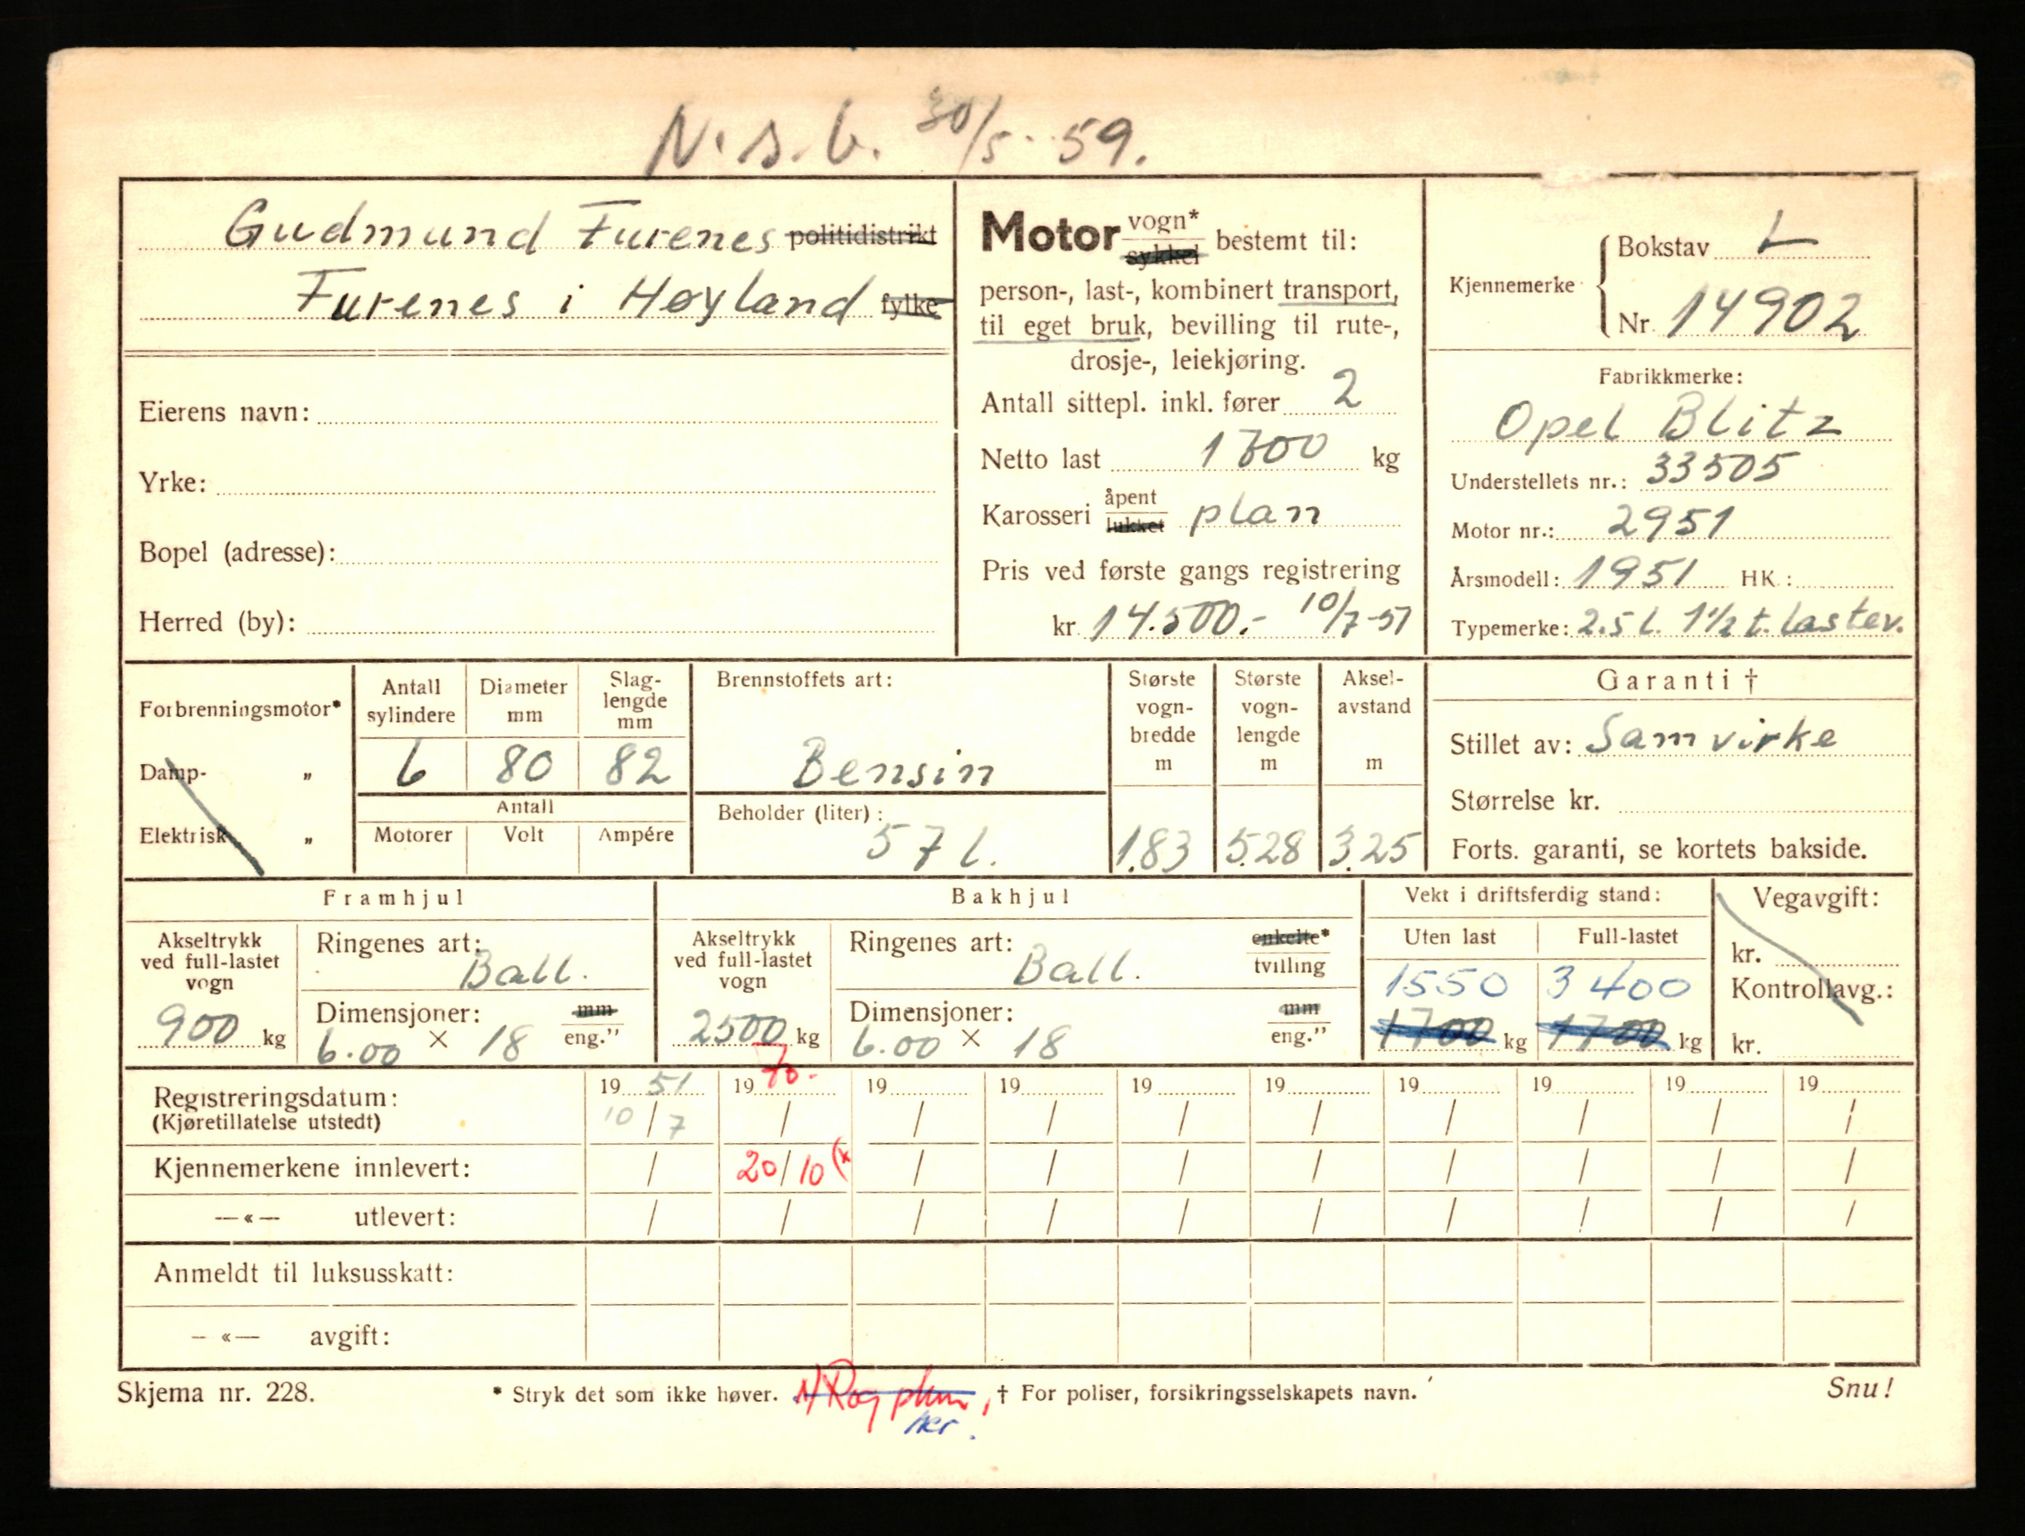 N.S.b. 30/5-59.
Gudmund Furenes politidistrikt
Furenes i Høyland fylke
Eierens navn:
Yrke:
Bopel (adresse):
Herred (by):
Motor vogn* sykkel bestemt til:
person-, last-, kombinert transport,
til eget bruk, bevilling til rute-,
drosje-, leiekjøring.
Antall sittepl. inkl. fører 2
Netto last 1700 kg
Karosseri åpent lukket plan
Pris ved første gangs registrering
kr 14.500.- 10/7-51
Kjennemerke Bokstav L
Nr 14902
Fabrikkmerke:
Opel Blitz
Understellets nr.: 33505
Motor nr.: 2951
Årsmodell: 1951 HK.:
Typemerke: 2.5 l. 1½ t. lastev.
Forbrenningsmotor*
Damp- „
Elektrisk „
Antall sylindere Diameter mm Slag-lengde mm
6 80 82
Antall
Motorer Volt Ampére
Brennstoffets art:
Bensin
Beholder (liter):
57 l.
Største vogn-bredde m Største vogn-lengde m Aksel-avstand m
1.83 5.28 3.25
Garanti †
Stillet av: Samvirke
Størrelse kr.
Forts. garanti, se kortets bakside.
Framhjul
Akseltrykk ved full-lastet vogn
900 kg
Ringenes art:
Ball.
Dimensjoner: mm eng."
6.00 × 18
Bakhjul
Akseltrykk ved full-lastet vogn
2500 kg
Ringenes art: enkelte* tvilling
Ball.
Dimensjoner: mm eng."
6.00 × 18
Vekt i driftsferdig stand:
Uten last Full-lastet
1550 3400
1700 kg 1700 kg
Vegavgift:
kr.
Kontrollavg.:
kr.
Registreringsdatum: 19 51 19 70.- 19 19 19 19 19 19 19 19
(Kjøretillatelse utstedt) 10/7 / / / / / / / / /
Kjennemerkene innlevert: / 20/10 (x / / / / / / / /
—«— utlevert: / / / / / / / / / /
Anmeldt til luksusskatt:
—«— avgift:
Skjema nr. 228. * Stryk det som ikke høver. † For poliser, forsikringsselskapets navn. Snu!